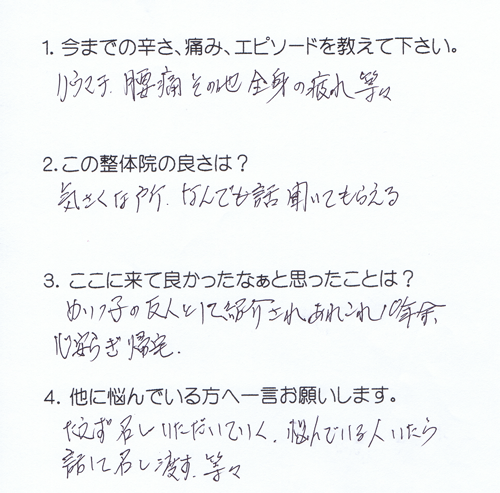 1. 今までの辛さ、痛み、エピソードを教えて下さい。
リウマチ、腰痛 その他 全身の疲れ 等々
2.この整体院の良さは？
気さくな所、なんでも話 聞いてもらえる
3. ここに来て良かったなぁと思ったことは？
めいっ子の友人として紹介され、あれこれ10年余
心安らぎ帰宅.
4. 他に悩んでいる方へ一言お願いします。
たえず名しいただいていく、悩んでいる人いたら
話して名し渡す 等々